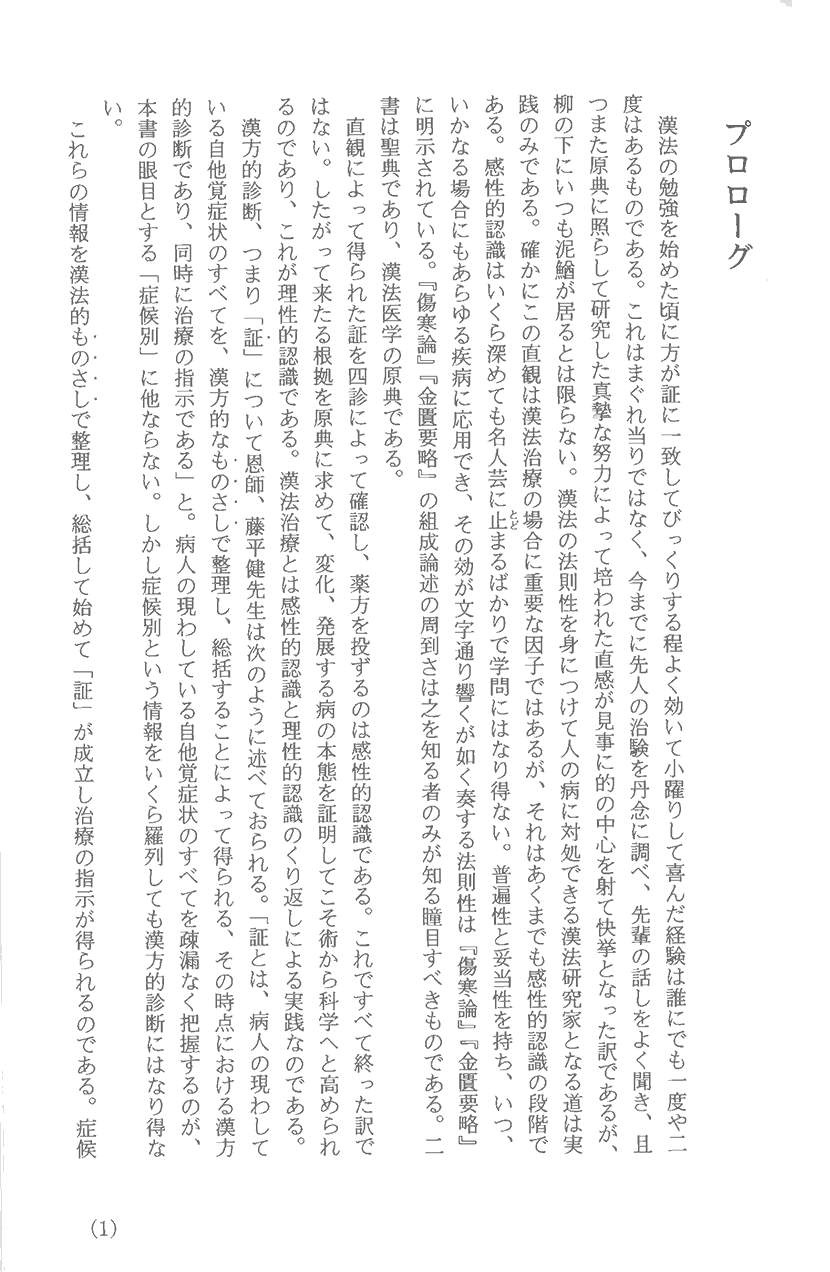 プロローグ
漢法の勉強を始めた頃に方が証に一致してびっくりする程よく効いて小躍りして喜んだ経験は誰にでも一度や二
度はあるものである。これはまぐれ当りではなく、今までに先人の治験を丹念に調べ、先輩の話しをよく聞き、且
つまた原典に照らして研究した真摯な努力によって培われた直感が見事に的の中心を射て快挙となった訳であるが、
柳の下にいつも泥鰌が居るとは限らない。漢法の法則性を身につけて人の病に対処できる漢法研究家となる道は実
践のみである。確かにこの直観は漢法治療の場合に重要な因子ではあるが、それはあくまでも感性的認識の段階で
ある。感性的認識はいくら深めても名人芸に止まるばかりで学問にはなり得ない。普遍性と妥当性を持ち、いつ、
いかなる場合にもあらゆる疾病に応用でき、その効が文字通り響くが如く奏する法則性は『傷寒論』『金匱要略』
に明示されている。『傷寒論』『金匱要略』の組成論述の周到さは之を知る者のみが知る瞳目すべきものである。二
書は聖典であり、漢法医学の原典である。
直観によって得られた証を四診によって確認し、薬方を投ずるのは感性的認識である。これですべて終った訳で
はない。したがって来たる根拠を原典に求めて、変化、発展する病の本態を証明してこそ術から科学へと高められ
るのであり、これが理性的認識である。漢法治療とは感性的認識と理性的認識のくり返しによる実践なのである。
漢方的診断、つまり「証」について恩師、藤平健先生は次のように述べておられる。「証とは、病人の現わして
いる自他覚症状のすべてを、漢方的なものさしで整理し、総括することによって得られる、その時点における漢方
的診断であり、同時に治療の指示である」と。病人の現わしている自他覚症状のすべてを疎漏なく把握するのが、
本書の眼目とする「症候別」に他ならない。しかし症候別という情報をいくら羅列しても漢方的診断にはなり得な
い。
これらの情報を漢法的ものさしで整理し、総括して始めて「証」が成立し治療の指示が得られるのである。症候
(1)